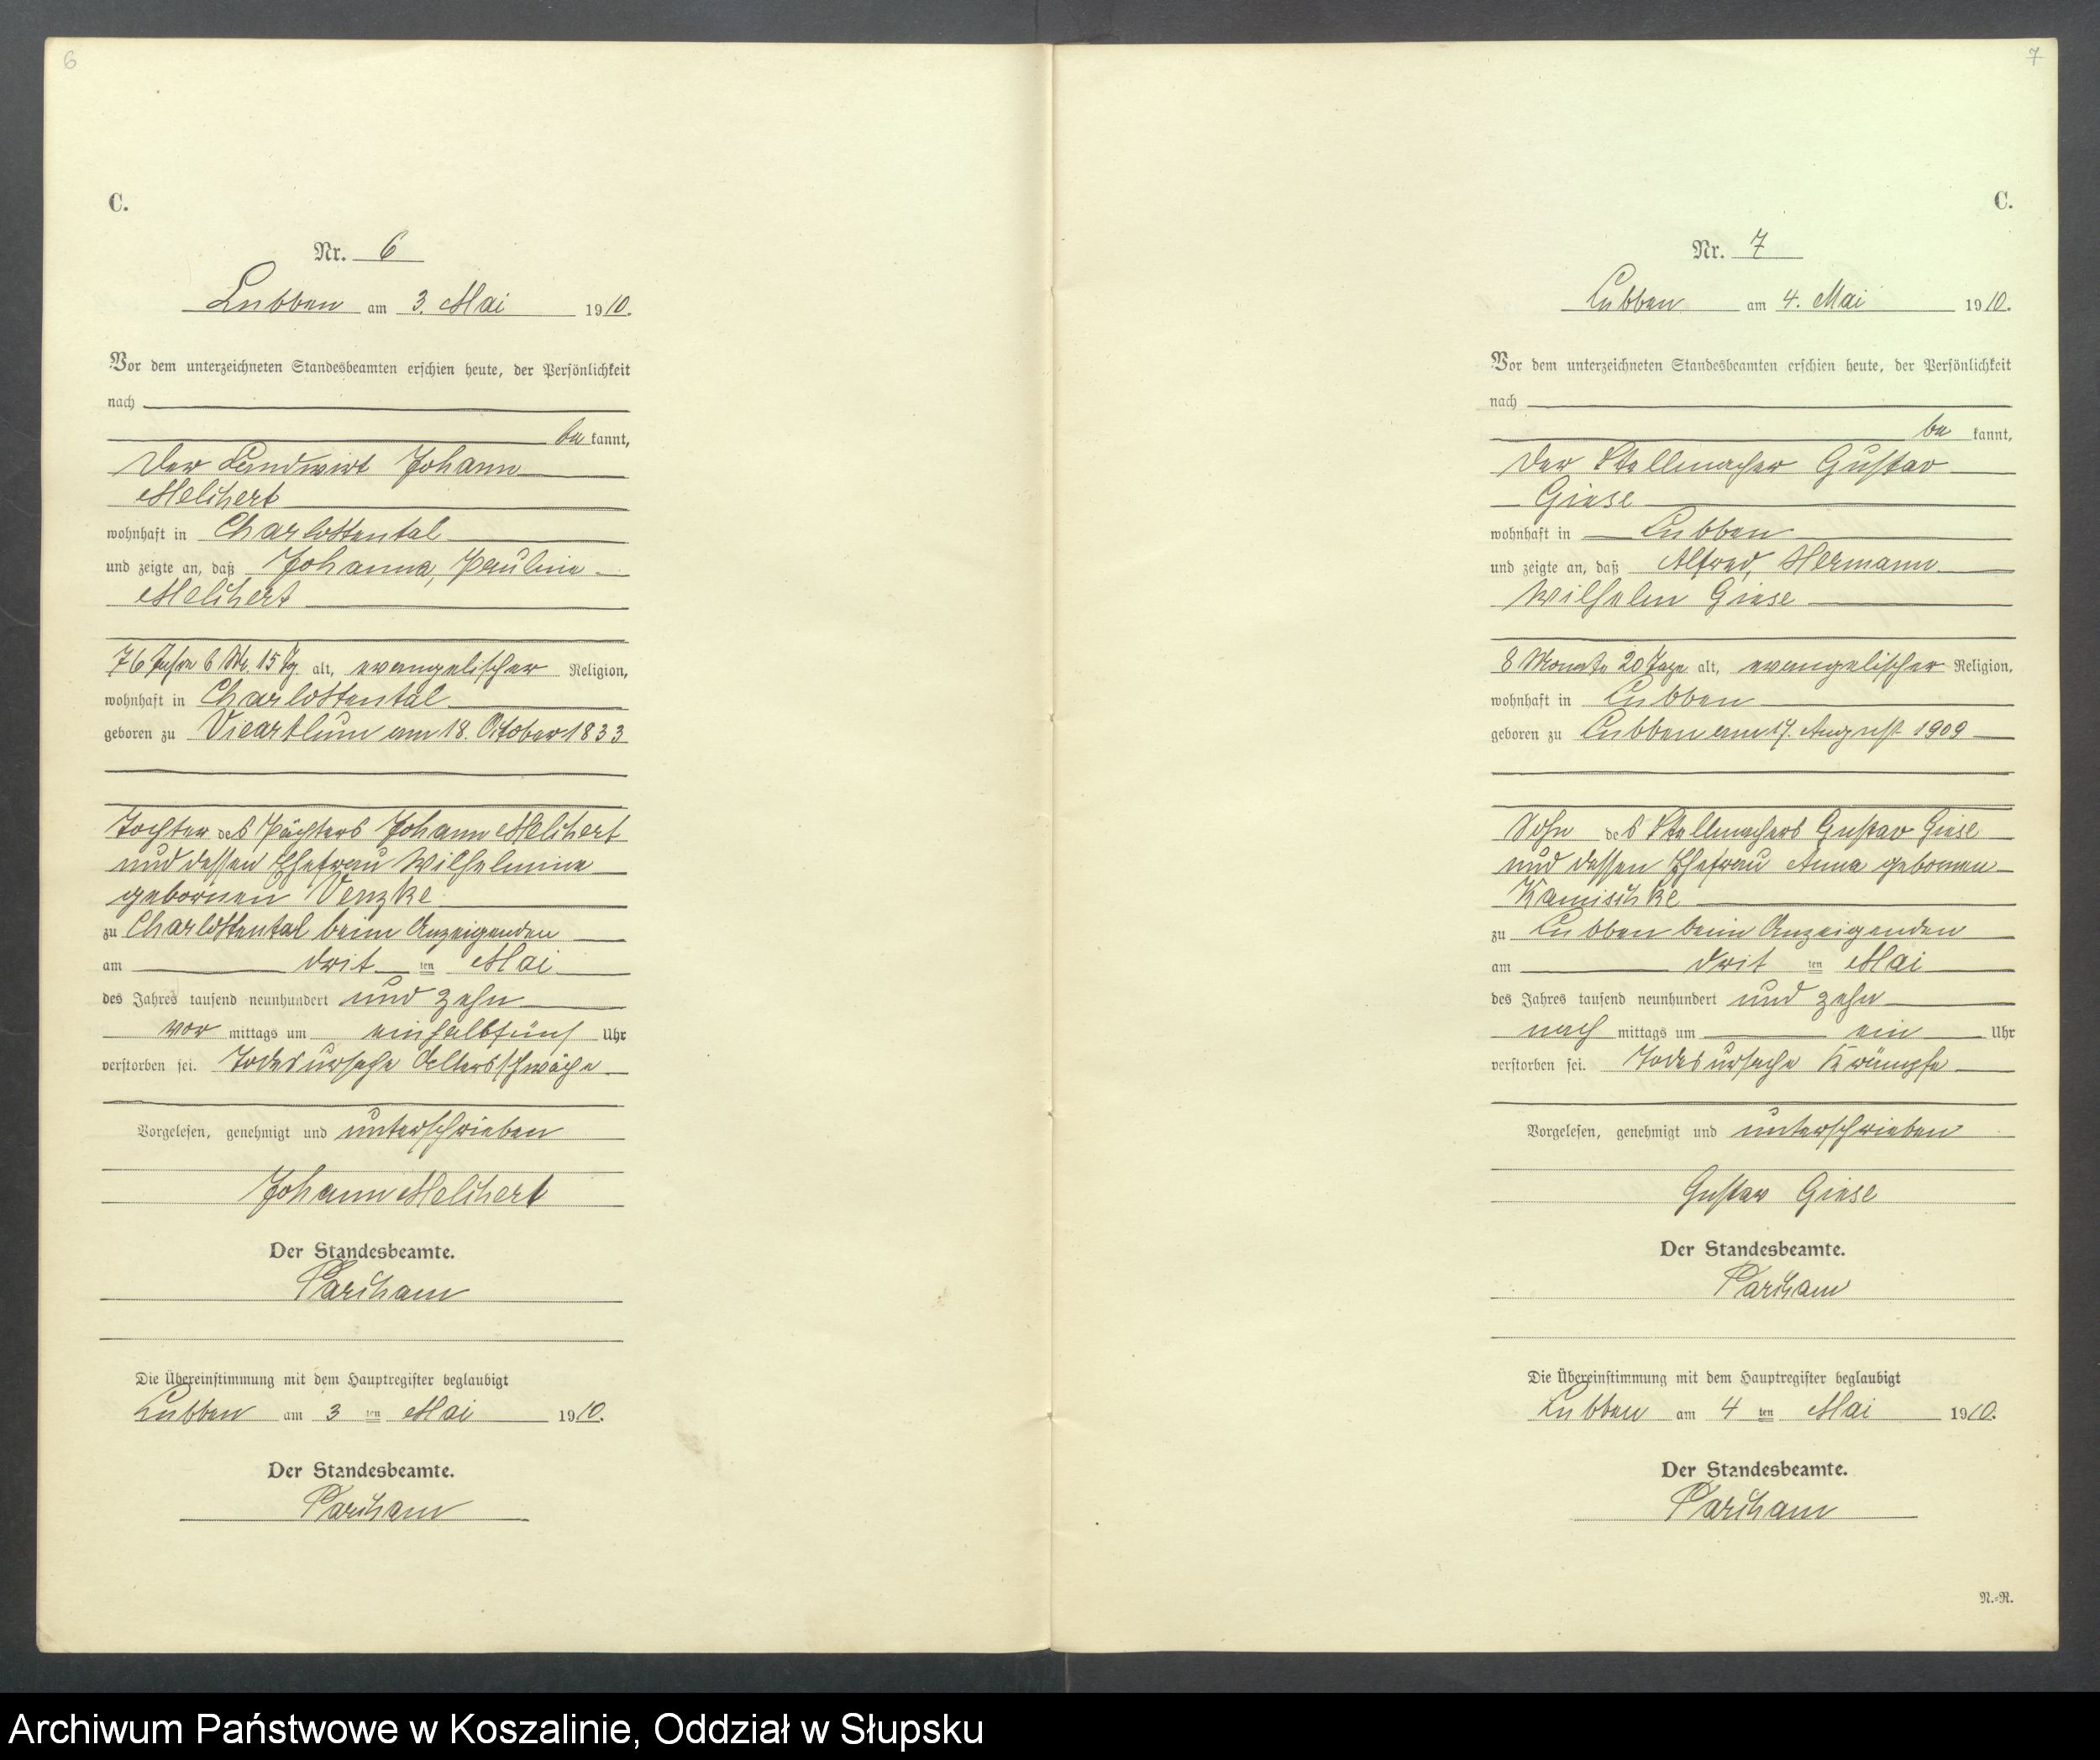 6
C.
Nr. 6
Lubben am 3. Mai 1910.
Vor dem unterzeichneten Standesbeamten erschien heute, der Persönlichkeit
nach
be kannt,
der Landwirt Johann
Melchert
wohnhaft in Charlottental
und zeigte an, daß Johanna, Pauline
Melchert
76 Jahre 6 Mt. 15 Tg. alt, evangelischer Religion,
wohnhaft in Charlottental
geboren zu Viartlum am 18. October 1833
Tochter des Pächters Johann Melchert
und dessen Ehefrau Wilhelmine
gebornen Venzke
zu Charlottental beim Anzeigenden
am drit ten Mai
des Jahres tausend neunhundert und zehn
vor mittags um einhalbfünf Uhr
verstorben sei. Todesursache Altersschwäche
Vorgelesen, genehmigt und unterschrieben
Johann Melchert
Der Standesbeamte.
Parcham
Die Übereinstimmung mit dem Hauptregister beglaubigt
Lubben am 3 ten Mai 1910.
Der Standesbeamte.
Parcham
7
C.
Nr. 7
Lubben am 4. Mai 1910.
Vor dem unterzeichneten Standesbeamten erschien heute, der Persönlichkeit
nach
be kannt,
der Stellmacher Gustav
Giese
wohnhaft in Lubben
und zeigte an, daß Alfred, Hermann
Wilhelm Giese
8 Monate 20 Tage alt, evangelischer Religion,
wohnhaft in Lubben
geboren zu Lubben am 14. August 1909
Sohn des Stellmachers Gustav Giese
und dessen Ehefrau Anna gebornen
Kamischke
zu Lubben beim Anzeigenden
am drit ten Mai
des Jahres tausend neunhundert und zehn
nach mittags um ein Uhr
verstorben sei. Todesursache Krämpfe
Vorgelesen, genehmigt und unterschrieben
Gustav Giese
Der Standesbeamte.
Parcham
Die Übereinstimmung mit dem Hauptregister beglaubigt
Lubben am 4 ten Mai 1910.
Der Standesbeamte.
Parcham
N.-R.
Archiwum Państwowe w Koszalinie, Oddział w Słupsku